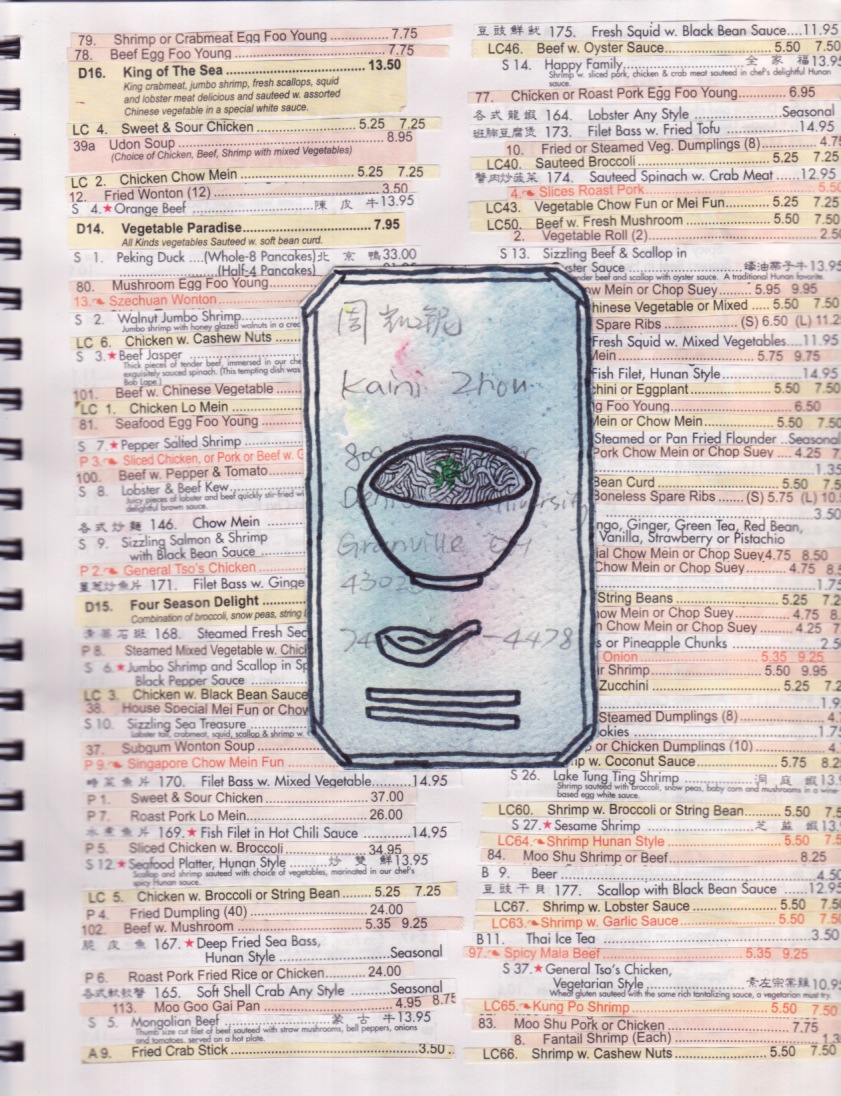 79. Shrimp or Crabmeat Egg Foo Young 7.75
78. Beef Egg Foo Young 7.75
D16. King of The Sea 13.50
King crabmeat, jumbo shrimp, fresh scallops, squid
and lobster meat delicious and sauteed w. assorted
Chinese vegetable in a special white sauce.
LC 4. Sweet & Sour Chicken 5.25 7.25
39a Udon Soup 8.95
(Choice of Chicken, Beef, Shrimp with mixed Vegetables)
LC 2. Chicken Chow Mein 5.25 7.25
12. Fried Wonton (12) 3.50
S 4.★Orange Beef 陳皮牛 13.95
D14. Vegetable Paradise 7.95
All Kinds vegetables Sauteed w. soft bean curd.
S 1. Peking Duck ....(Whole-8 Pancakes) 北京鴨 33.00
(Half-4 Pancakes)
80. Mushroom Egg Foo Young
13. Szechuan Wonton
S 2. Walnut Jumbo Shrimp
Jumbo shrimp with honey glazed walnuts in a
LC 6. Chicken w. Cashew Nuts
S 3.★Beef Jasper
Thick pieces of tender beef, immersed in our
exquisitely sauced spinach. (This tempting dish was
Bob Lape.)
101. Beef w. Chinese Vegetable
LC 1. Chicken Lo Mein
81. Seafood Egg Foo Young
S 7.★Pepper Salted Shrimp
P 3. Sliced Chicken, or Pork or Beef w.
100. Beef w. Pepper & Tomato
S 8. Lobster & Beef Kew
Juicy pieces of lobster and beef quickly stir-fried
delightful brown sauce.
各式炒麵 146. Chow Mein
S 9. Sizzling Salmon & Shrimp
with Black Bean Sauce
P 2. General Tso's Chicken
171. Filet Bass w. Ginge
D15. Four Season Delight
Combination of broccoli, snow peas, string
168. Steamed Fresh
P 8. Steamed Mixed Vegetable w.
S 6.★Jumbo Shrimp and Scallop in
Black Pepper Sauce
LC 3. Chicken w. Black Bean Sauce
38. House Special Mei Fun or
S 10. Sizzling Sea Treasure
Lobster tail, crabmeat, squid, scallop & shrimp
37. Subgum Wonton Soup
P 9. Singapore Chow Mein Fun
170. Filet Bass w. Mixed Vegetable 14.95
P 1. Sweet & Sour Chicken 37.00
P 7. Roast Pork Lo Mein 26.00
水煮魚片 169.★Fish Filet in Hot Chili Sauce 14.95
P 5. Sliced Chicken w. Broccoli 34.95
S 12.★Seafood Platter, Hunan Style 炒雙鮮 13.95
Scallop and shrimp sauteed with choice of vegetables, marinated in our chef's
spicy Hunan sauce.
LC 5. Chicken w. Broccoli or String Bean 5.25 7.25
P 4. Fried Dumpling (40) 24.00
102. Beef w. Mushroom 5.35 9.25
脆皮魚 167.★Deep Fried Sea Bass,
Hunan Style Seasonal
P 6. Roast Pork Fried Rice or Chicken 24.00
165. Soft Shell Crab Any Style Seasonal
113. Moo Goo Gai Pan 4.95 8.75
S 5. Mongolian Beef 蒙古牛 13.95
Thumb size cut filet of beef sauteed with straw mushrooms, bell peppers, onions
and tomatoes. served on a hot plate.
A 9. Fried Crab Stick 3.50
周
Kaini Zhou
Granville OH
4302
74
-4478
175. Fresh Squid w. Black Bean Sauce 11.95
LC46. Beef w. Oyster Sauce 5.50 7.50
S 14. Happy Family 全家福 13.95
Shrimp w. sliced pork, chicken & crab meat sauteed in chef's delightful Hunan
sauce.
77. Chicken or Roast Pork Egg Foo Young 6.95
各式龍蝦 164. Lobster Any Style Seasonal
173. Filet Bass w. Fried Tofu 14.95
10. Fried or Steamed Veg. Dumplings (8) 4.75
LC40. Sauteed Broccoli 5.25 7.25
蟹肉炒菠菜 174. Sauteed Spinach w. Crab Meat 12.95
4. Slices Roast Pork 5.50
LC43. Vegetable Chow Fun or Mei Fun 5.25 7.25
LC50. Beef w. Fresh Mushroom 5.50 7.50
2. Vegetable Roll (2) 2.50
S 13. Sizzling Beef & Scallop in
ster Sauce 蠔油帶子牛 13.95
nder beef and scallop with oyster sauce. A traditional Hunan favorite.
ow Mein or Chop Suey 5.95 9.95
hinese Vegetable or Mixed 5.50 7.50
Spare Ribs (S) 6.50 (L) 11.2
Fresh Squid w. Mixed Vegetables 11.95
Mein 5.75 9.75
Fish Filet, Hunan Style 14.95
hini or Eggplant 5.50 7.50
g Foo Young 6.50
Mein or Chow Mein 5.50 7.50
Steamed or Pan Fried Flounder Seasonal
Pork Chow Mein or Chop Suey 4.25
1.35
Bean Curd 5.50 7.5
Boneless Spare Ribs (S) 5.75 (L) 10.
3.50
ngo, Ginger, Green Tea, Red Bean,
Vanilla, Strawberry or Pistachio
ial Chow Mein or Chop Suey 4.75 8.50
Chow Mein or Chop Suey 4.75 8.5
1.75
String Beans 5.25 7.2
ow Mein or Chop Suey 4.75 8.
n Chow Mein or Chop Suey 4.25 7.
s or Pineapple Chunks 2.5
Onion 5.35 9.25
r Shrimp 5.50 9.95
Zucchini 5.25 7.2
1.9
Steamed Dumplings (8) 4.
okies 1.7
p or Chicken Dumplings (10) 4.
p w. Coconut Sauce 5.75 8.2
S 26. Lake Tung Ting Shrimp 洞庭蝦 13.
Shrimp sauteed with broccoli, snow peas, baby corn and mushrooms in a wine-
based egg white sauce.
LC60. Shrimp w. Broccoli or String Bean 5.50 7.5
S 27.★Sesame Shrimp 芝蔴蝦 13.
LC64. Shrimp Hunan Style 5.50 7.5
84. Moo Shu Shrimp or Beef 8.25
B 9. Beer 4.50
豆豉干貝 177. Scallop with Black Bean Sauce 12.95
LC67. Shrimp w. Lobster Sauce 5.50 7.50
LC63. Shrimp w. Garlic Sauce 5.50 7.50
B11. Thai Ice Tea 3.50
97. Spicy Mala Beef 5.35 9.25
S 37.★General Tso's Chicken,
Vegetarian Style 素左宗棠雞 10.95
Wheat gluten sauteed with the same rich tantalizing sauce, a vegetarian must try.
LC65. Kung Po Shrimp 5.50 7.50
83. Moo Shu Pork or Chicken 7.75
8. Fantail Shrimp (Each) 1.3
LC66. Shrimp w. Cashew Nuts 5.50 7.50